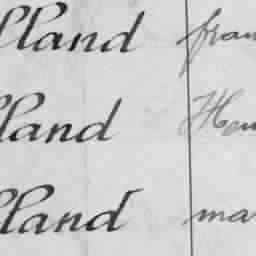 lland fran
lland Hen
lland ma